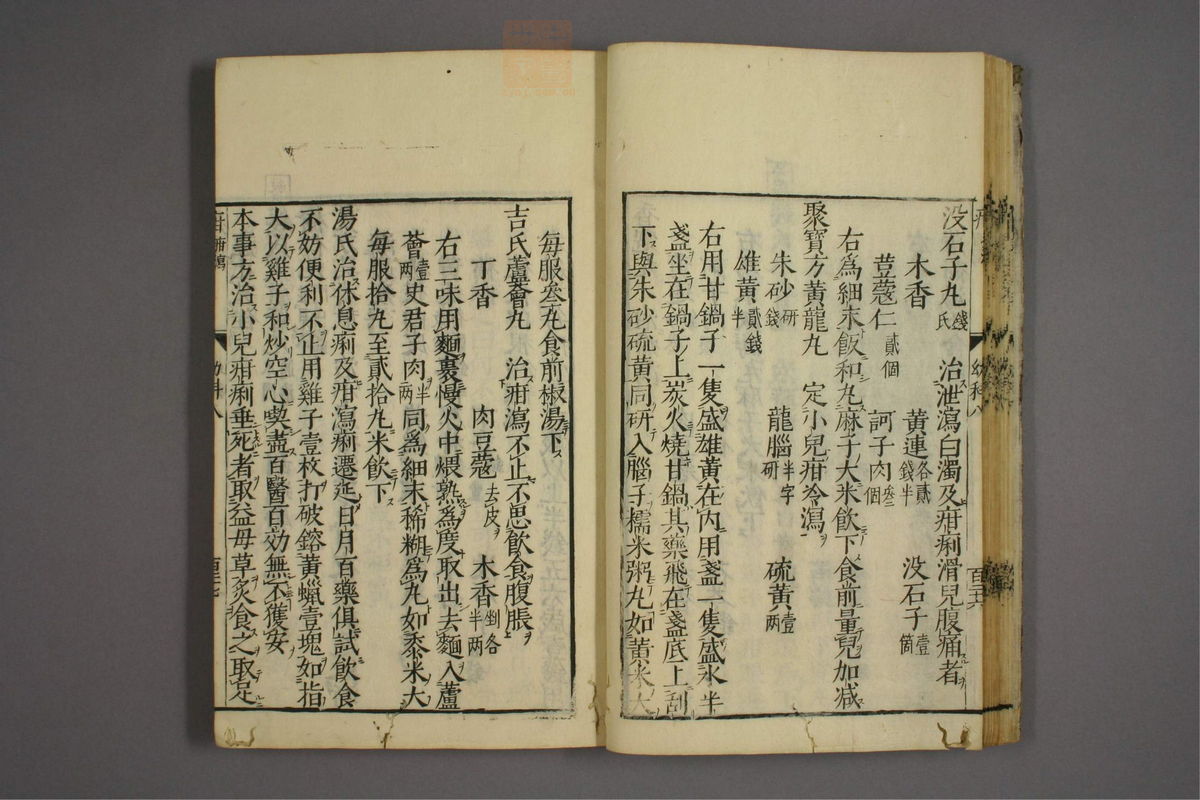 没石子丸錢氏 治泄瀉白濁及疳痢滑兒腹痛者
木香 黃連各貳錢半 没石子壹箇
荳蔻仁貳個 訶子肉叁個
右為細末飯和丸麻子大米飲下食前量兒加减
聚寶方黃龍丸 定小兒疳冷瀉
朱砂研錢 龍腦半字研 硫黃壹两
雄黃貳錢半
右用甘鍋子一隻盛雄黃在内用盞一隻盛水半
盞坐在鍋子上炭火燒甘鍋其藥飛在盞底上刮
下與朱砂硫黃同研入腦子糯米粥丸如黃米大
每服叁丸食前椒湯下
吉氏蘆薈丸 治疳瀉不止不思飲食腹脹
丁香 肉豆蔻去皮 木香剉各半两
右三味用麵裹慢火中煨熟為度取出去麵入蘆
薈壹两史君子肉半两同為細末稀糊為丸如黍米大
每服拾丸至貳拾丸米飲下
湯氏治休息痢及疳瀉痢遷延日月百藥俱試飲食
不妨便利不止用雞子壹枚打破鎔黃蠟壹塊如指
大以雞子和炒空心喫盡百醫百効無不獲安
本事方治小兒疳痢垂死者取益母草炙食之取足
幼科八